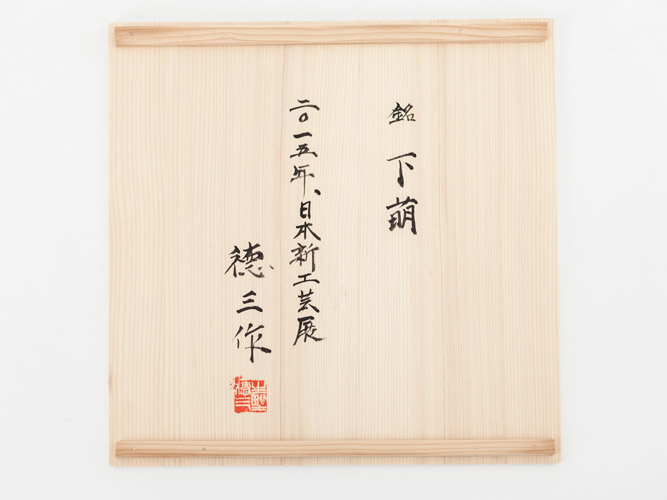 銘 下萌
二〇一五年、日本新工芸展
徳三作